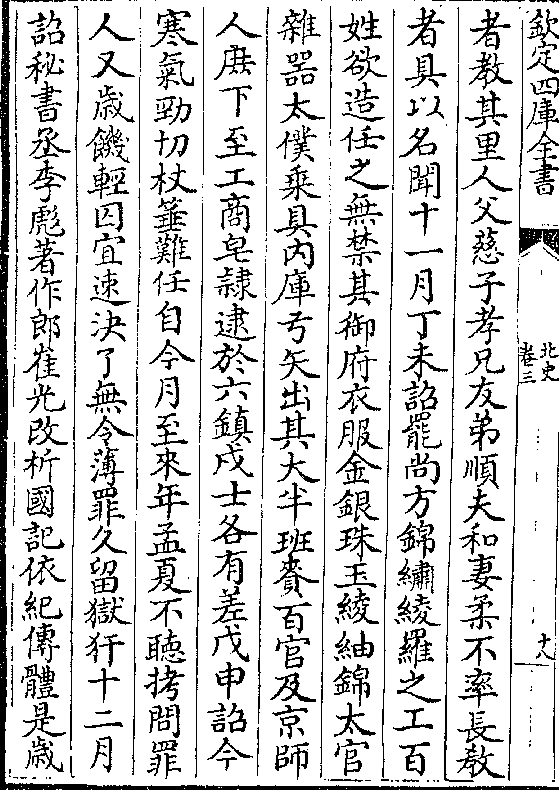 欽定四庫全書
北史
卷三
十八
者教其里人父慈子孝兄友弟順夫和妻柔不率長教
者具以名聞十一月丁未詔罷尚方錦繡綾羅之工百
姓欲造任之無禁其御府衣服金銀珠玉綾紬錦太官
雜器太僕乘具内庫弓矢出其大半班賚百官及京師
人庶下至工商皂隸逮於六鎮戍士各有差戊申詔今
寒氣勁切杖箠難任自今月至來年孟夏不聽拷問罪
人又歲饑輕囚宜速決了無令薄罪久留獄犴十二月
詔秘書丞李彪著作郎崔光改析國記依紀傳體是歲